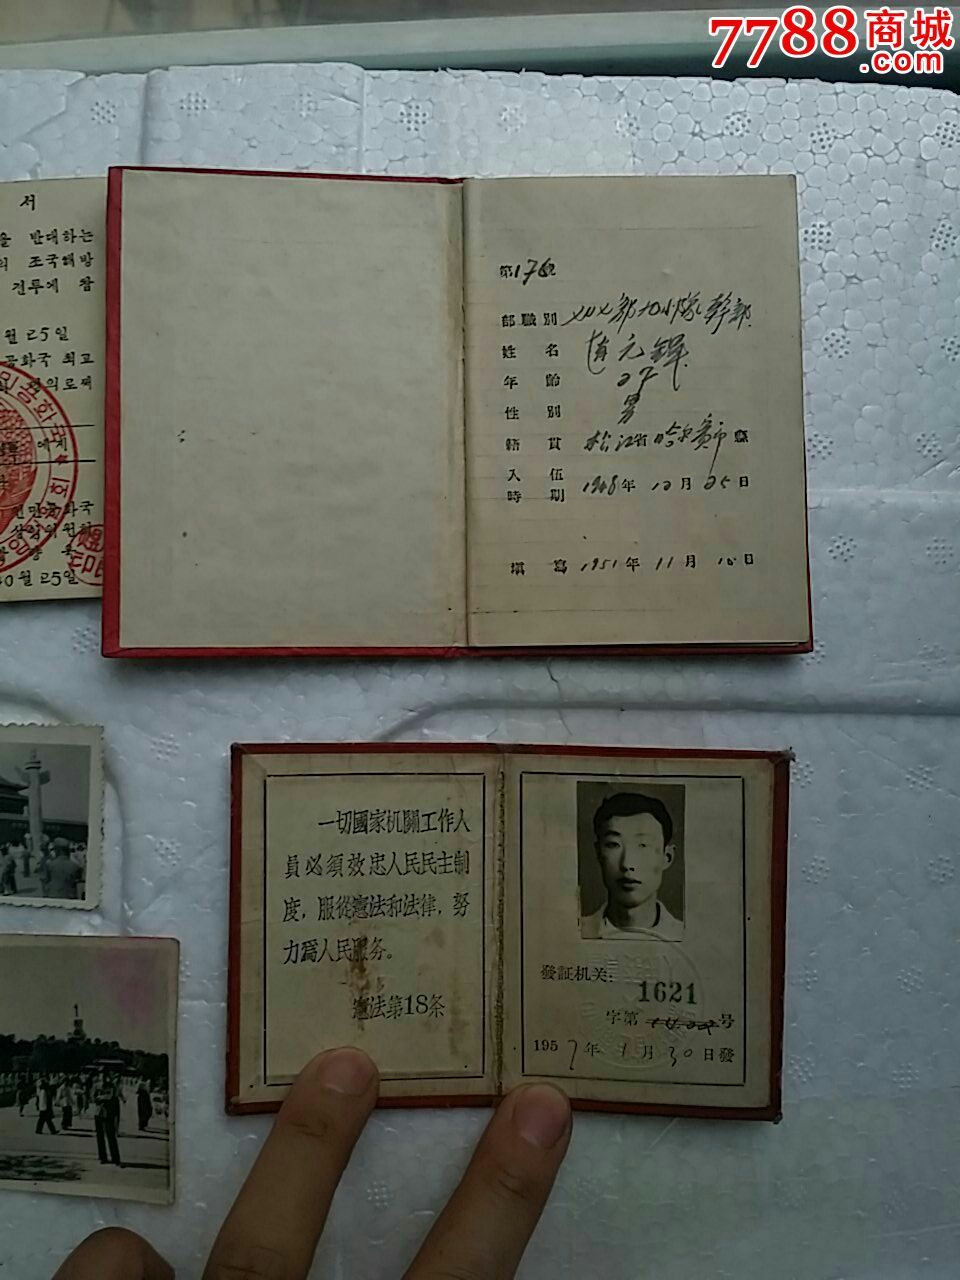 7788商城
.com
서
을 반대하는
의 조국해방
전투에 참
월25일
공화국 최고
의로써
에게
인민공화국
상임위원회
10월25일
第176號
部職別 幹部
姓名 趙元鐸
年齡 27
性別 男
籍貫 松江省哈尔濱市縣
入伍時期 1948年12月25日
填寫 1951年11月10日
一切國家机關工作人
員必須效忠人民民主制
度，服從憲法和法律，努
力爲人民服务。
憲法第18条
發証机关：
1621
字第 号
1957年1月30日發